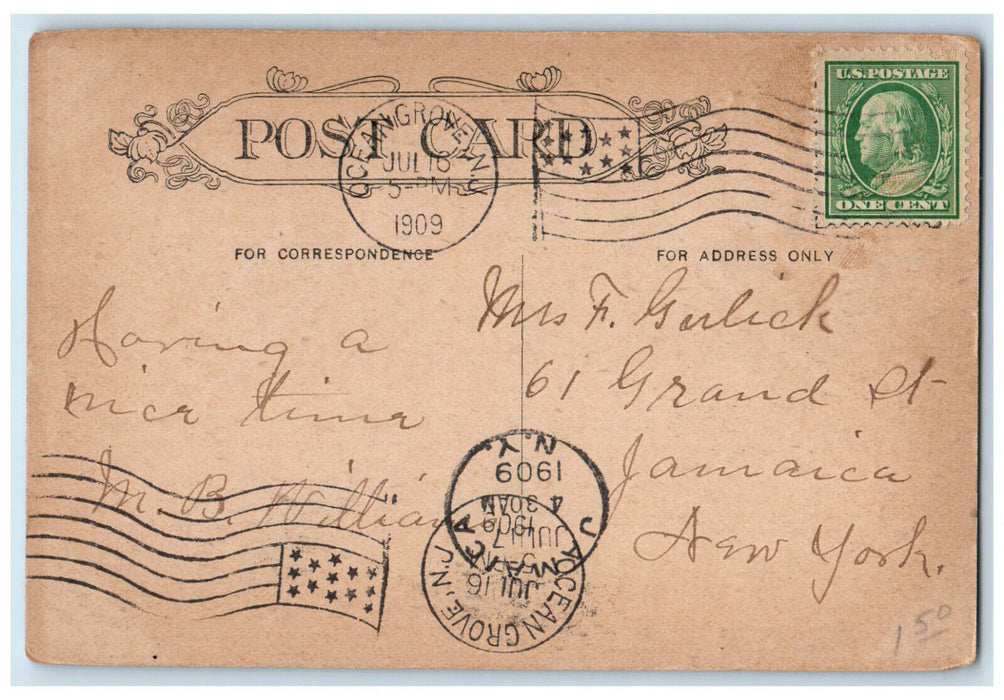 POST CARD
OCEAN GROVE, N.J.
JUL 16
5-PM
1909
U.S. POSTAGE
ONE CENT
FOR CORRESPONDENCE
FOR ADDRESS ONLY
Having a
nice time
M. B. William
Mrs F. Gerlick
61 Grand St
Jamaica
New York.
JAMAICA
N.Y.
1909
4 30AM
JUL 17
OCEAN GROVE, N.J.
JUL 16
1909
1 50